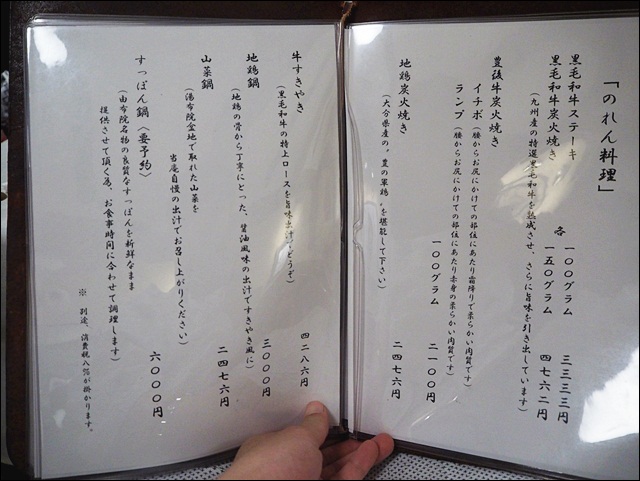 「のれん料理」
黒毛和牛ステーキ
黒毛和牛炭火焼き
各 一〇〇グラム 三三三三円
一五〇グラム 四七六二円
(九州産の特選黒毛和牛を熟成させ、さらに旨味を引き出しています)
豊後牛炭火焼き
イチボ(腰からお尻にかけての部位にあたり霜降りで柔らかい肉質です)
ランプ(腰からお尻にかけての部位にあたり赤身の柔らかい肉質です)
一〇〇グラム 二一〇〇円
地鶏炭火焼き 二四七六円
(大分県産の、豊の軍鶏、を堪能して下さい)
牛すきやき 四二八六円
(黒毛和牛の特上ロースを旨味出汁でどうぞ)
地鶏鍋 三〇〇〇円
(地鶏の骨から丁寧にとった、醤油風味の出汁ですきやき風に)
山菜鍋 二四七六円
(湯布院盆地で取れた山菜を
当庵自慢の出汁でお召し上がりください)
すっぽん鍋〈要予約〉 六〇〇〇円
(由布院名物の良質なすっぽんを新鮮なまま
提供させて頂く為、お食事時間に合わせて調理します)
※ 別途、消費税八%が掛かります。